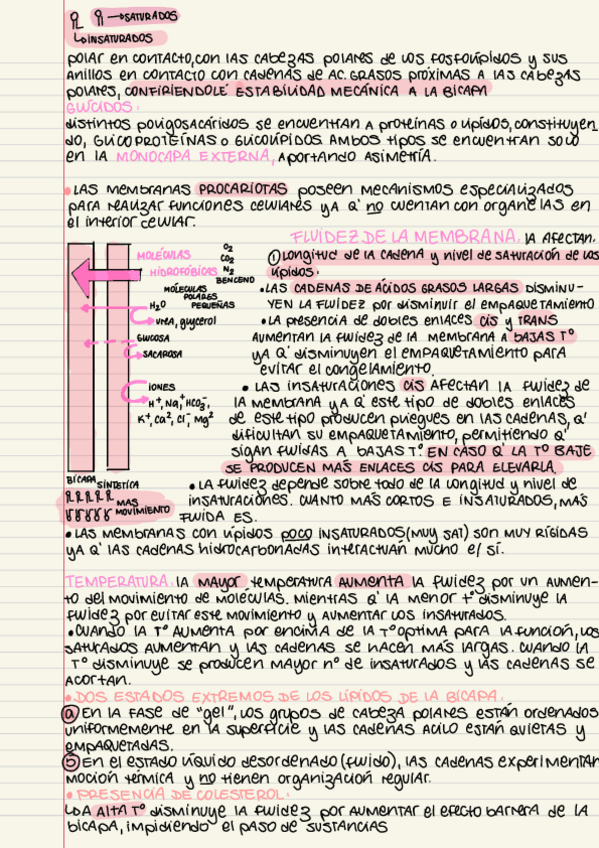 →SATURADOS
↳INSATURADOS
polar en contacto, con las cabezas polares de los fosfolípidos y sus
anillos en contacto con cadenas de ac. grasos próximas a las cabezas
polares, confiriendole estabilidad mecánica a la bicapa
GLÚCIDOS:
distintos poligosacáridos se encuentran a proteínas o lípidos, constituyen
do, glicoproteínas o glicolípidos. Ambos tipos se encuentran solo
en la monocapa externa, aportando asimetría.
• Las membranas PROCARIOTAS poseen mecanismos especializados
para realizar funciones celulares ya q' no cuentan con organelas en
el interior celular.
FLUIDEZ DE LA MEMBRANA: la afectan.
① Longitud de la cadena y nivel de saturación de los
lípidos:
• Las cadenas de ácidos grasos largas disminu-
yen la fluidez por disminuir el empaquetamiento
• La presencia de dobles enlaces cis y trans
aumentan la fluidez de la membrana a bajas T°
ya q' disminuyen el empaquetamiento para
evitar el congelamiento.
• Las insaturaciones cis afectan la fluidez de
la membrana ya q' este tipo de dobles enlaces
de este tipo producen pliegues en las cadenas, q'
dificultan su empaquetamiento, permitiendo q'
sigan fluidas a bajas T°. En caso q' la T° baje
se producen más enlaces cis para elevarla.
MOLÉCULAS
HIDROFÓBICAS
O2
CO2
N2
BENCENO
MOLÉCULAS
POLARES
PEQUEÑAS
H2O
UREA, glycerol
GLUCOSA
SACAROSA
IONES
H+, Na+, HCO3-,
K+, Ca2, Cl-, Mg2
BICAPA SINTÉTICA
MAS
MOVIMIENTO
• La fluidez depende sobre todo de la longitud y nivel de
insaturaciones. Cuanto más cortos e insaturados, más
fluida es.
• Las membranas con lípidos poco insaturados (muy sat) son muy rígidas
ya q' las cadenas hidrocarbonadas interactúan mucho e/ sí.
TEMPERATURA: la mayor temperatura aumenta la fluidez por un aumen-
to del movimiento de moléculas. Mientras q' la menor t° disminuye la
fluidez por evitar este movimiento y aumentar los insaturados.
• Cuando la T° aumenta por encima de la T° optima para la función, los
saturados aumentan y las cadenas se hacen más largas. Cuando la
T° disminuye se producen mayor n° de insaturados y las cadenas se
acortan.
• DOS ESTADOS EXTREMOS DE LOS LÍPIDOS DE LA BICAPA:
ⓐ En la fase de "gel", los grupos de cabeza polares están ordenados
uniformemente en la superficie y las cadenas acilo están quietas y
empaquetadas.
ⓑ En el estado líquido desordenado (fluido), las cadenas experimentan
moción térmica y no tienen organización regular.
• PRESENCIA DE COLESTEROL:
↳A ALTA T° disminuye la fluidez por aumentar el efecto barrera de la
bicapa, impidiendo el paso de sustancias